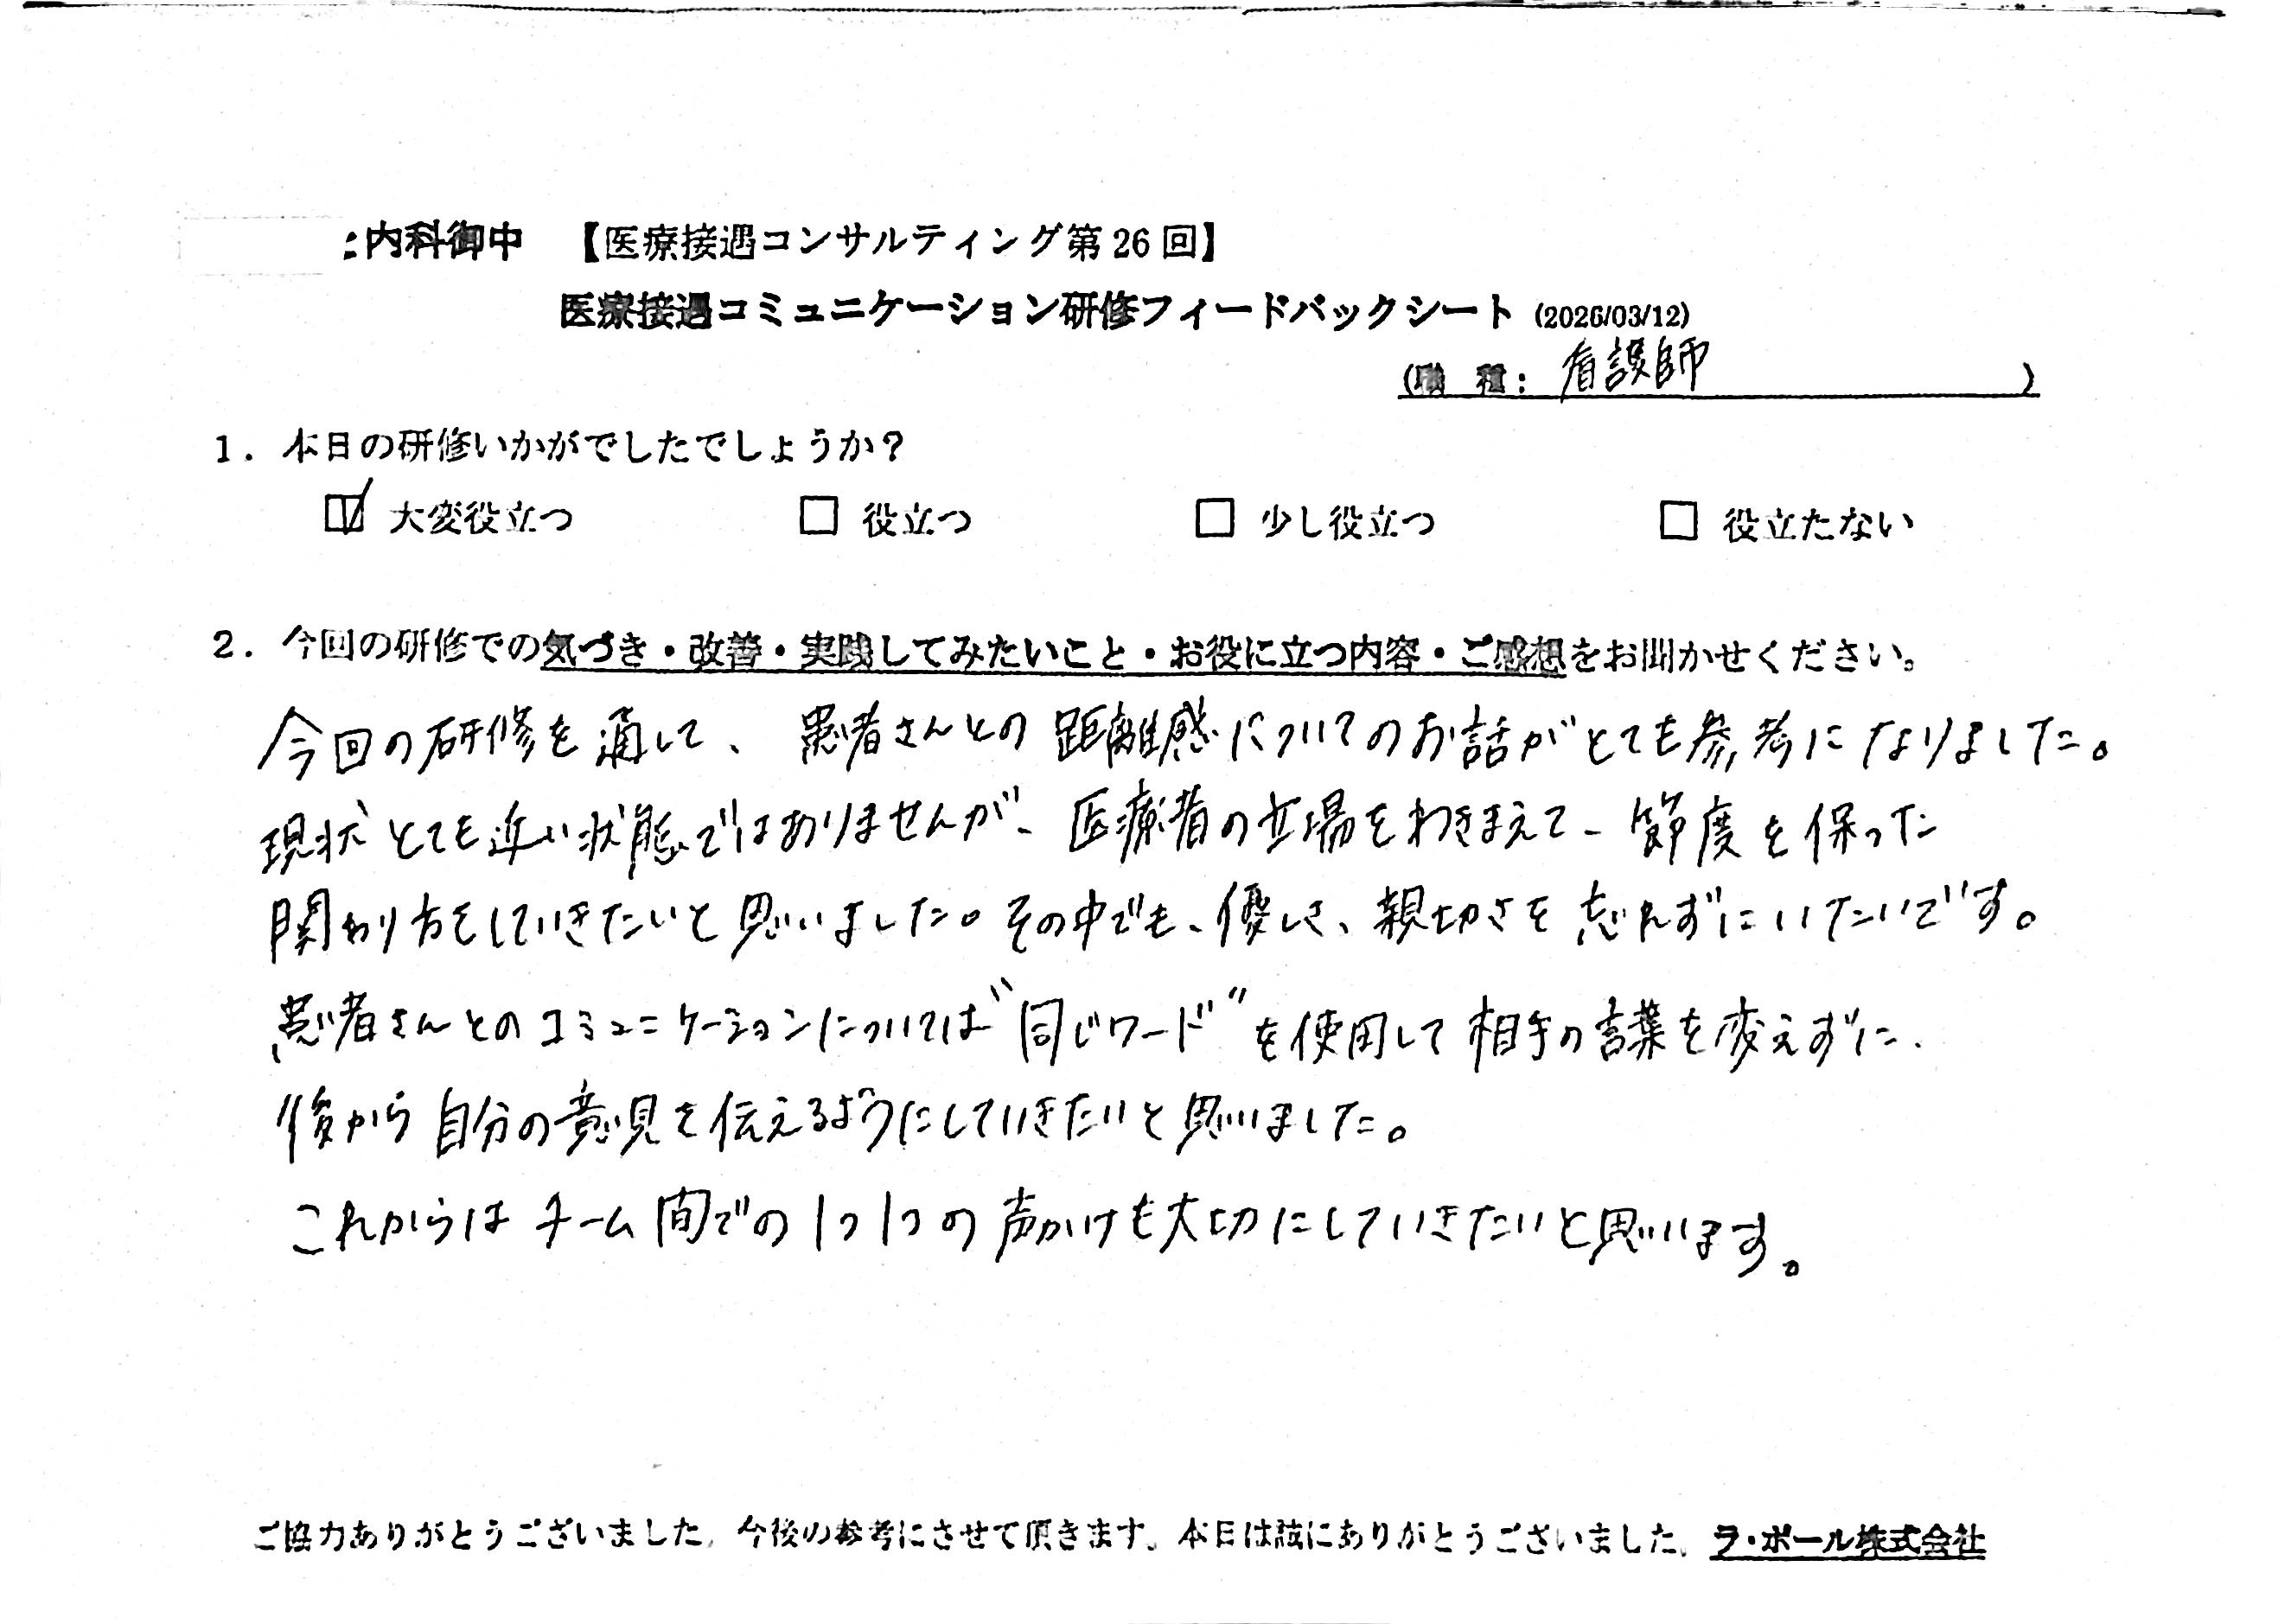 :内科御中 【医療接遇コンサルティング第26回】
医療接遇コミュニケーション研修フィードバックシート (2026/03/12)
(職 種: 看護師 )
1. 本日の研修いかがでしたでしょうか?
☑ 大変役立つ □ 役立つ □ 少し役立つ □ 役立たない
2. 今回の研修での気づき・改善・実践してみたいこと・お役に立つ内容・ご感想をお聞かせください。
今回の研修を通して、患者さんとの距離感についてのお話がとても参考になりました。
現状とても近い状態ではありませんが、医療者の立場をわきまえて、節度を保った
関わり方をしていきたいと思いました。その中でも、優しさ、親切さを忘れずにいたいです。
患者さんとのコミュニケーションについては"同じワード"を使用して相手の言葉を変えずに、
後から自分の意見を伝えるようにしていきたいと思いました。
これからはチーム間での1つ1つの声かけも大切にしていきたいと思います。
ご協力ありがとうございました。今後の参考にさせて頂きます。本日は誠にありがとうございました。ラ・ポール株式会社